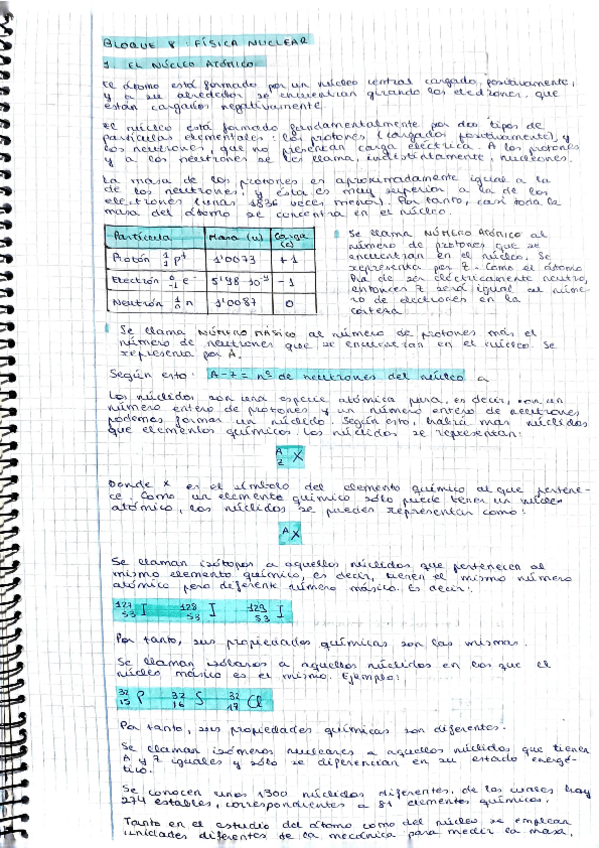 BLOQUE 8: FÍSICA NUCLEAR
1. EL NÚCLEO ATÓMICO
El átomo está formado por un núcleo central cargado positivamente,
y a su alrededor se encuentran girando los electrones, que
están cargados negativamente.
El núcleo está formado fundamentalmente por dos tipos de
partículas elementales: los protones (cargados positivamente), y
los neutrones, que no presentan carga eléctrica. A los protones
y a los neutrones se les llama, indistintamente, nucleones.
La masa de los protones es aproximadamente igual a la
de los neutrones, y ésta es muy superior a la de los
electrones (unas 1836 veces menor). Por tanto, casi toda la
masa del átomo se concentra en el núcleo.
Partícula Masa (u) Carga (e)
Protón ¹₁ p⁺ 1'0073 +1
Electrón ⁰₋₁ e⁻ 5'48·10⁻⁴ -1
Neutrón ¹₀ n 1'0087 0
Se llama NÚMERO ATÓMICO al
número de protones que se
encuentran en el núcleo. Se
representa por Z. Como el átomo
ha de ser eléctricamente neutro,
entonces Z será igual al núme-
ro de electrones en la
corteza.
Se llama NÚMERO MÁSICO al número de protones más el
número de neutrones que se encuentran en el núcleo. Se
representa por A.
Según esto: A-Z = nº de neutrones del núcleo
Los núclidos son una especie atómica pura, es decir, con un
número entero de protones y un número entero de neutrones
podemos formar un núclido. Según esto, habrá más núclidos
que elementos químicos. Los núclidos se representan:
ᴬ_Z X
Donde X es el símbolo del elemento químico al que pertene-
ce. Como un elemento químico sólo puede tener un
atómico, los núclidos se pueden representar como:
ᴬX
Se llaman isótopos a aquellos núclidos que pertenecen al
mismo elemento químico, es decir, tienen el mismo número
atómico pero diferente número másico. Es decir:
¹²⁷₅₃ I ¹²⁸₅₃ I ¹²⁹₅₃ I
Por tanto, sus propiedades químicas son las mismas.
Se llaman isóbaros a aquellos núclidos en los que el
número másico es el mismo. Ejemplo:
³²₁₅ P ³²₁₆ S ³²₁₇ Cl
Por tanto, sus propiedades químicas son diferentes.
Se llaman isómeros nucleares a aquellos núclidos que tienen
A y Z iguales y sólo se diferencian en su estado energé-
tico.
Se conocen unos 1300 núclidos diferentes, de los cuales hay
274 estables, correspondientes a 81 elementos químicos.
Tanto en el estudio del átomo como del núcleo se emplean
unidades diferentes de la mecánica para medir la masa,